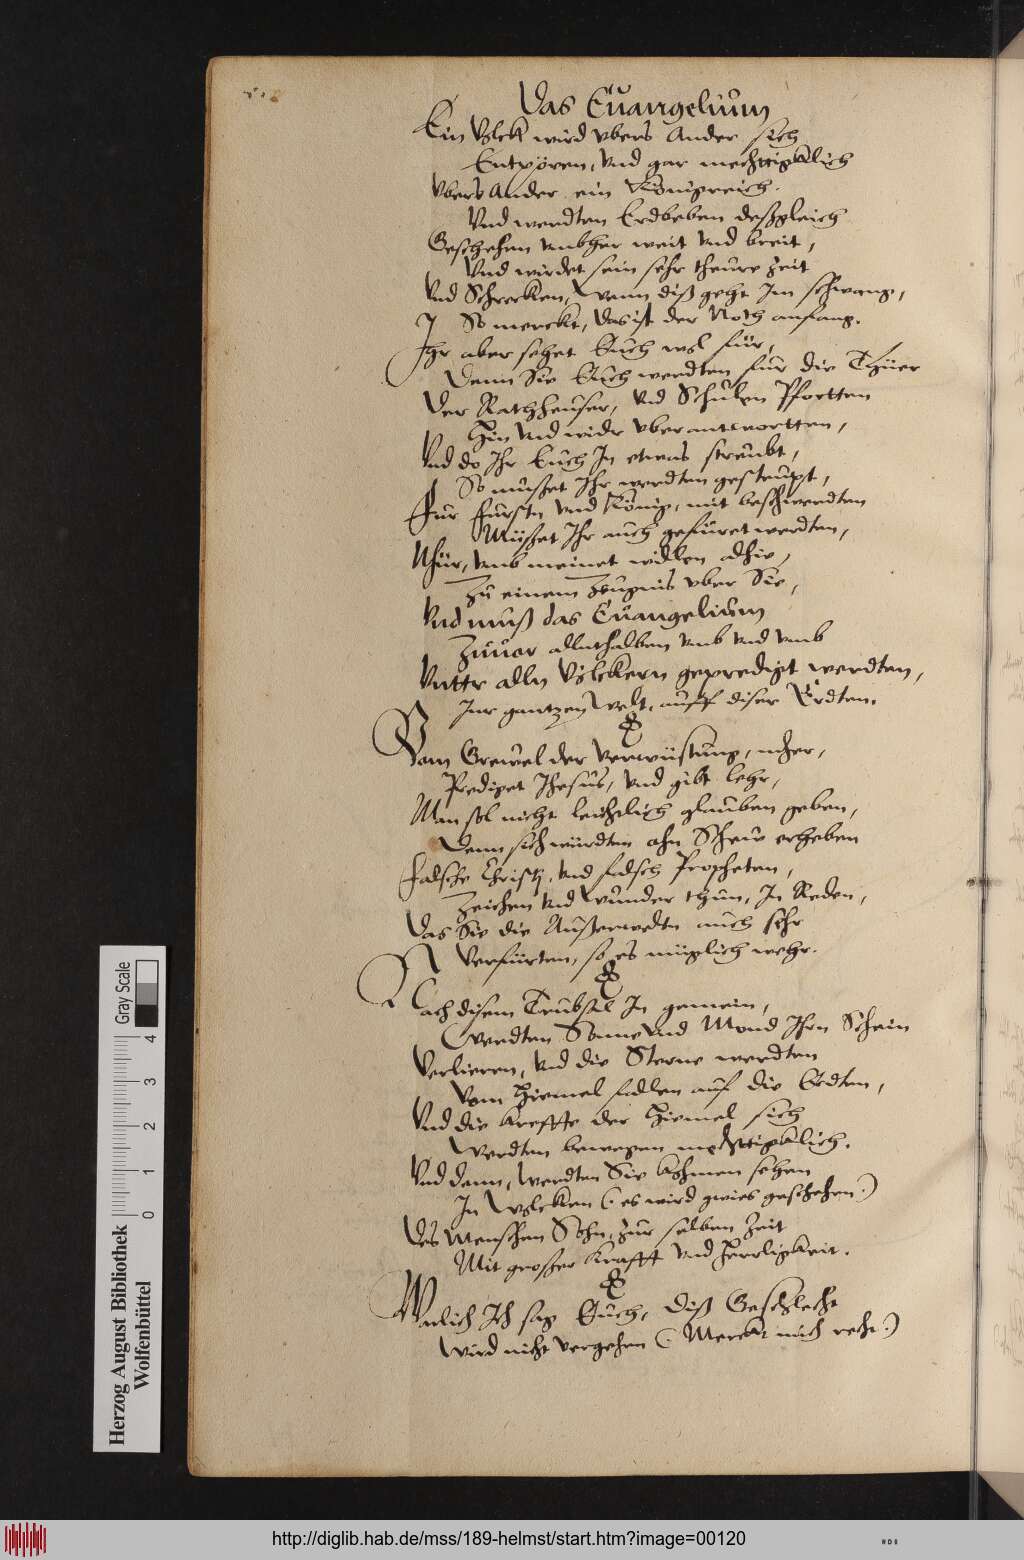 Das Euangelium
Ein Volck wird vbers Ander sich
Entpören, vnd gar mechttigklich
Vbers Ander ein Königreich.
Vnd werdten Erdbeben deßgleich
Geschehen vmbher weit vnd breit,
Vnd wirdet sein sehr theure Zeit
Vnd Schrecken, Wenn diß geht Im schwang,
So merckt, das ist der Noth anfang.
Ihr aber sehet Euch wol für,
Denn Sie Euch werdten fur die Thüer
Der Rathheuser, vnd Schulen Pfortten
Hin vnd wider vberantwortten,
Vnd do Ihr Euch In etwas streubt,
So mußet Ihr werdten gesteupt,
Fur Fursten vnd König, mit beschwerdten
Müßet Ihr auch gefüret werdten,
Nhür, vmb meinet willen alhie,
Zu einem Zeugnis vber Sie,
Vnd muß das Euangelium
Zuuor allnthalben vmb vnd vmb
Vntter alln Völckern gepredigt werdten,
Inr gantzen Welt, auff diser Erdten.
Vom Grewel der verwüstung, mher,
Prediget Ihesus, vnd gibt lehr,
Man sol nicht leichtlich glauben geben,
Denn sich würdten ahn Schew erheben
Falsche Christj, vnd falsch Propheten,
Zeichen vnd Wunder thun, In Reden,
Das Sie die Außerweltn auch sehr
Verfürten, so es müglich wehr.
Nach disem Trubsal In gemein,
Werdten Sonne vnd Mond Ihrn Schein
Verlieren, vnd die Sterne werdten
Vom Hiemel fallen auf die Erdten,
Vnd die kreffte der Hiemel sich
Werdten bewegen mechttigklich.
Vnd denn, werdten Sie kohmen sehen
In Wolcken (: es wird gwies geschehen :)
Des Menschen Sohn, zur selben Zeit
Mit großer krafft vnd Herrligkeit.
Warlich Ich sag Euch, diß Geschlecht
Wird nicht vergehen (: Merckt mich recht :)
Herzog August Bibliothek
Wolfenbüttel
0 1 2 3 4
Gray Scale
http://diglib.hab.de/mss/189-helmst/start.htm?image=00120